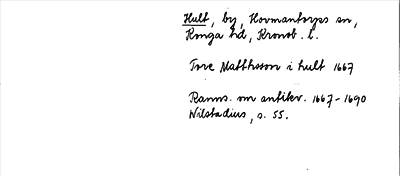 Hult, by, Hovmantorps sn,
Konga hd, Kronob. l.
Tore Matthsson i hult 1667
Ranns. om antikv. 1667-1690
Wilstadius, s. 55.